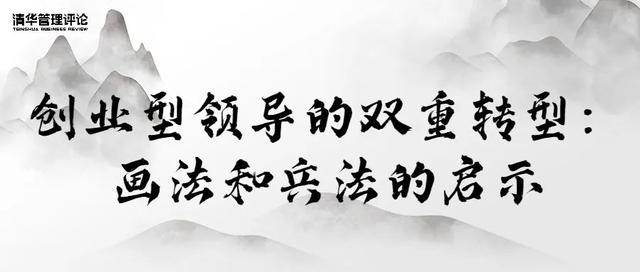 清华管理评论
TSINGHUA BUSINESS REVIEW
创业型领导的双重转型：
画法和兵法的启示